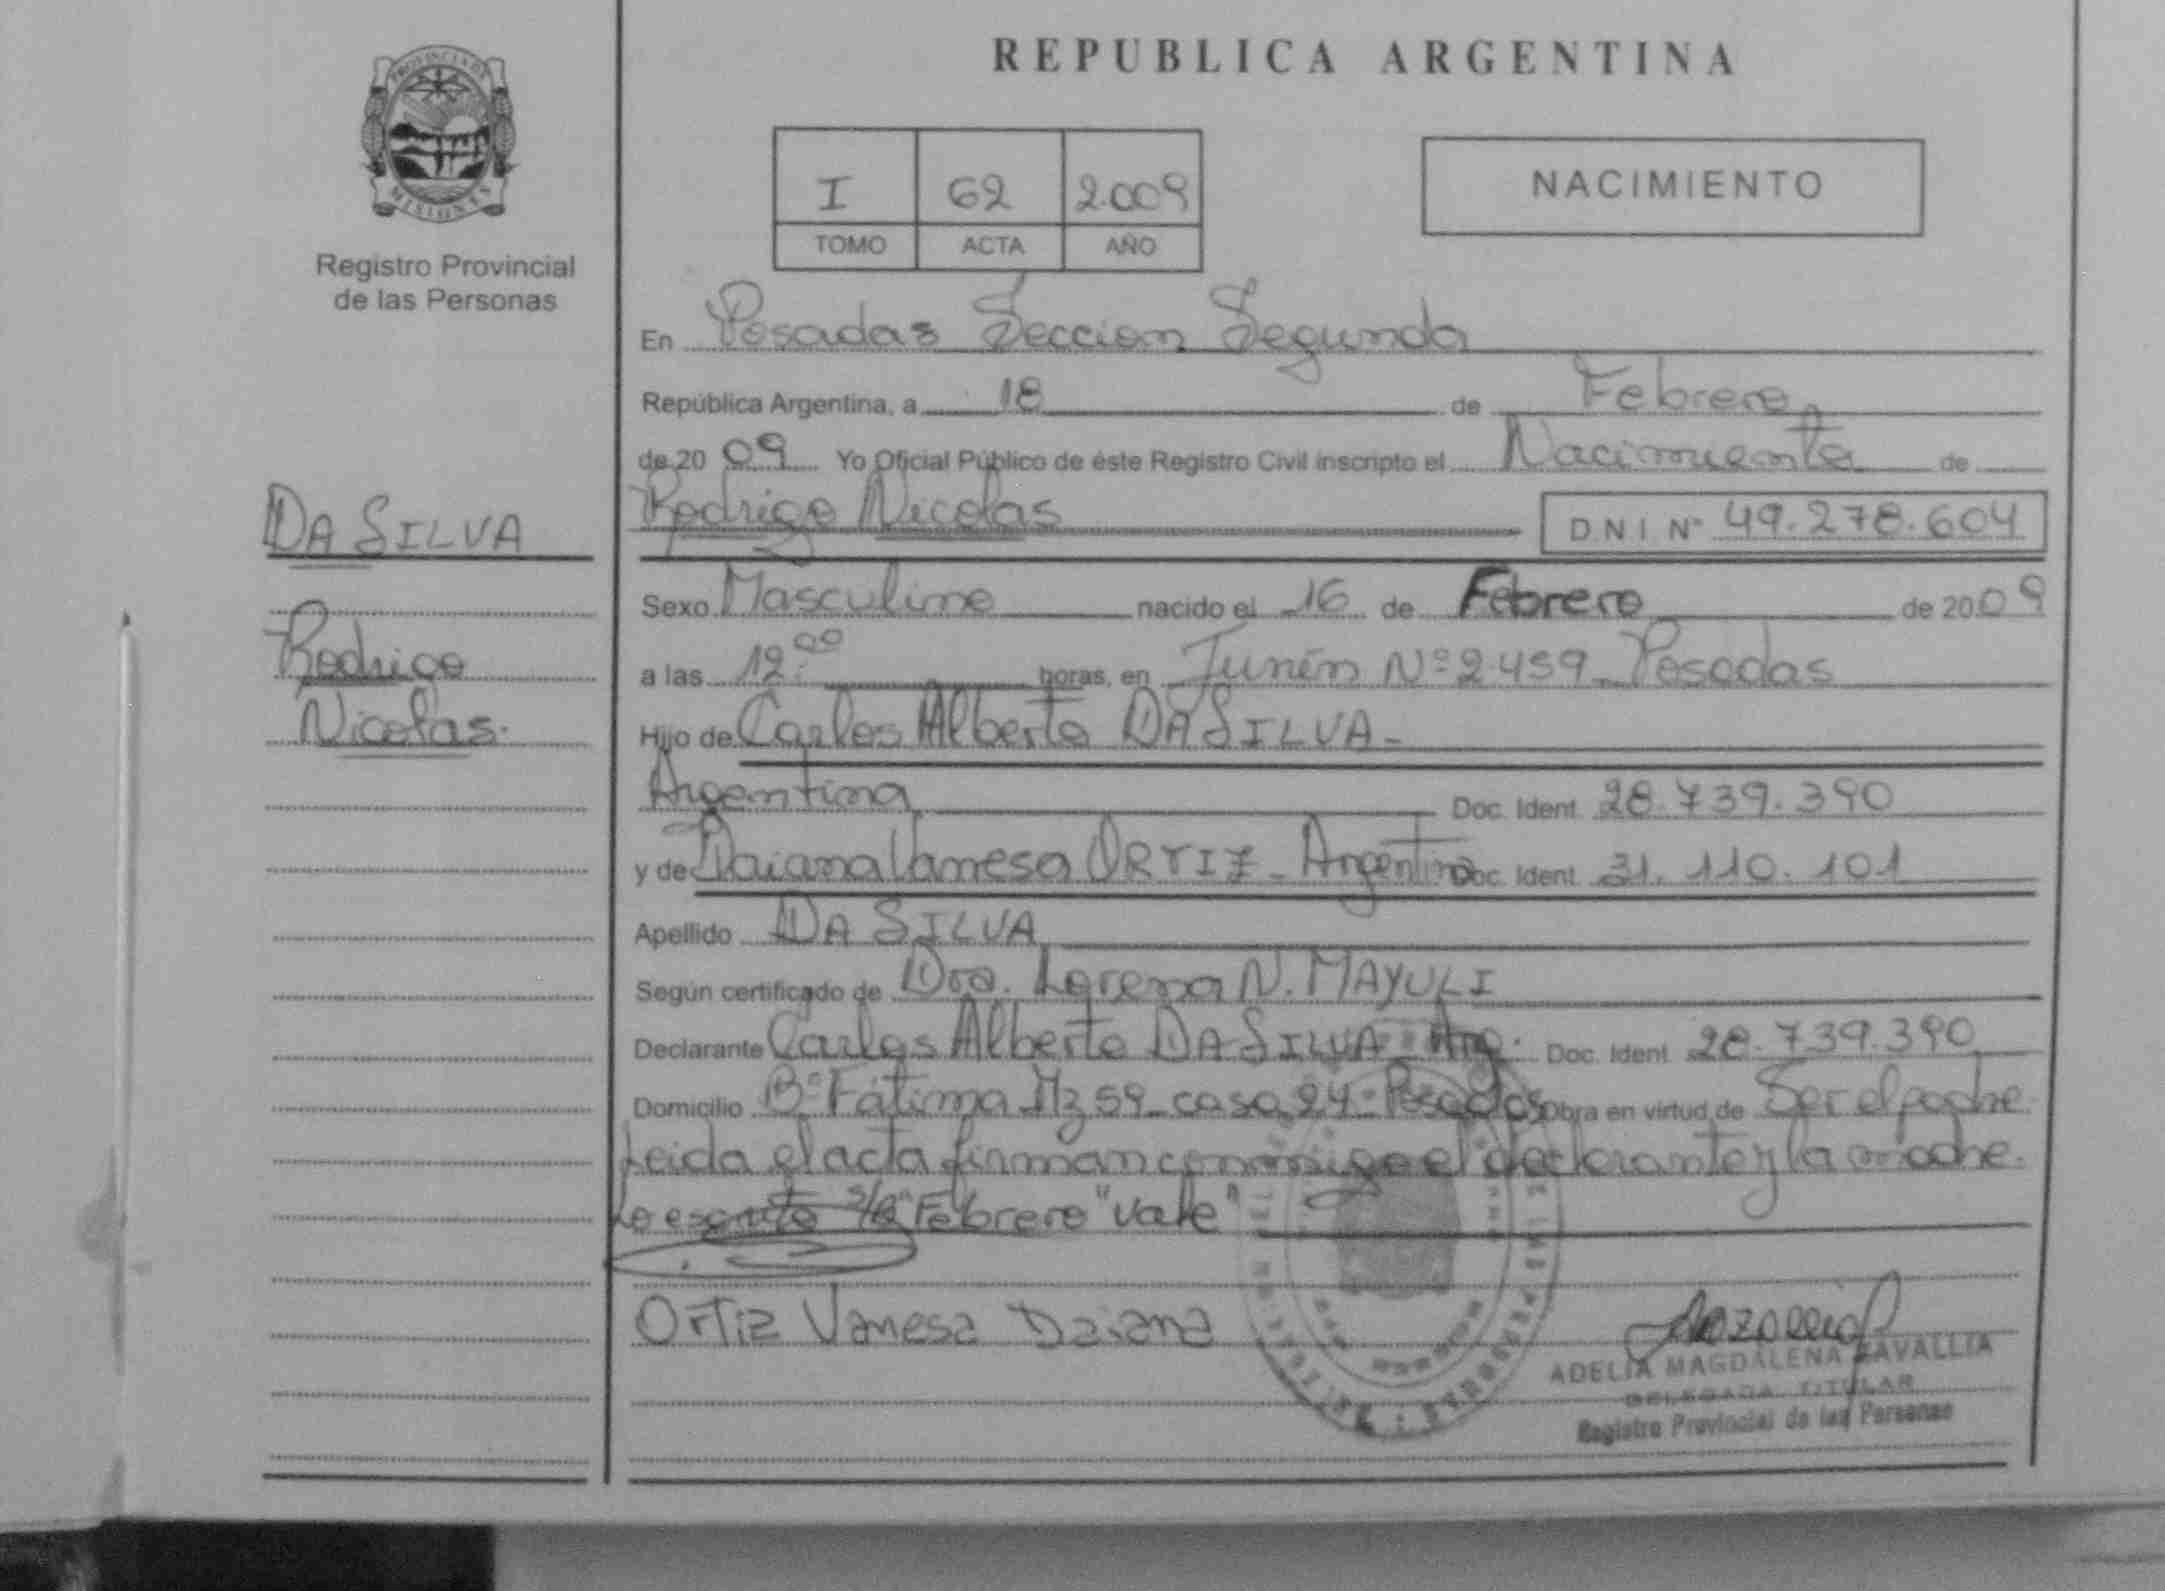 PROVINCIA DE
MISIONES
Registro Provincial
de las Personas
DA SILVA
Rodrigo
Nicolas.
REPUBLICA ARGENTINA
I 62 2.009
TOMO ACTA AÑO
NACIMIENTO
En Posadas Seccion Segunda
República Argentina, a 18 de Febrero
de 20 09 Yo Oficial Público de éste Registro Civil inscripto el Nacimiento de
Rodrigo Nicolas D N I Nº 49.278.604
Sexo Masculino nacido el 16 de Febrero de 2009
a las 12:00 horas, en Junín Nº 2459 Posadas
Hijo de Carlos Alberto DA SILVA -
Argentina Doc. Ident. 28.739.390
y de Daiana Vanesa ORTIZ - Argentina Doc. Ident. 31.110.101
Apellido DA SILVA
Según certificado de Dra. Lorena N. MAYULI
Declarante Carlos Alberto DA SILVA - Arg. Doc. Ident. 28.739.390
Domicilio Bº Fátima Mz 59 casa 24 - Posadas Obra en virtud de Ser el padre.
Leida el acta firman conmigo el declarante y la madre.
Lo escrito s/r "Febrero" "Vale"
Ortiz Vanesa Daiana
ADELIA MAGDALENA ZAVALLIA
DELEGADA TITULAR
Registro Provincial de las Personas